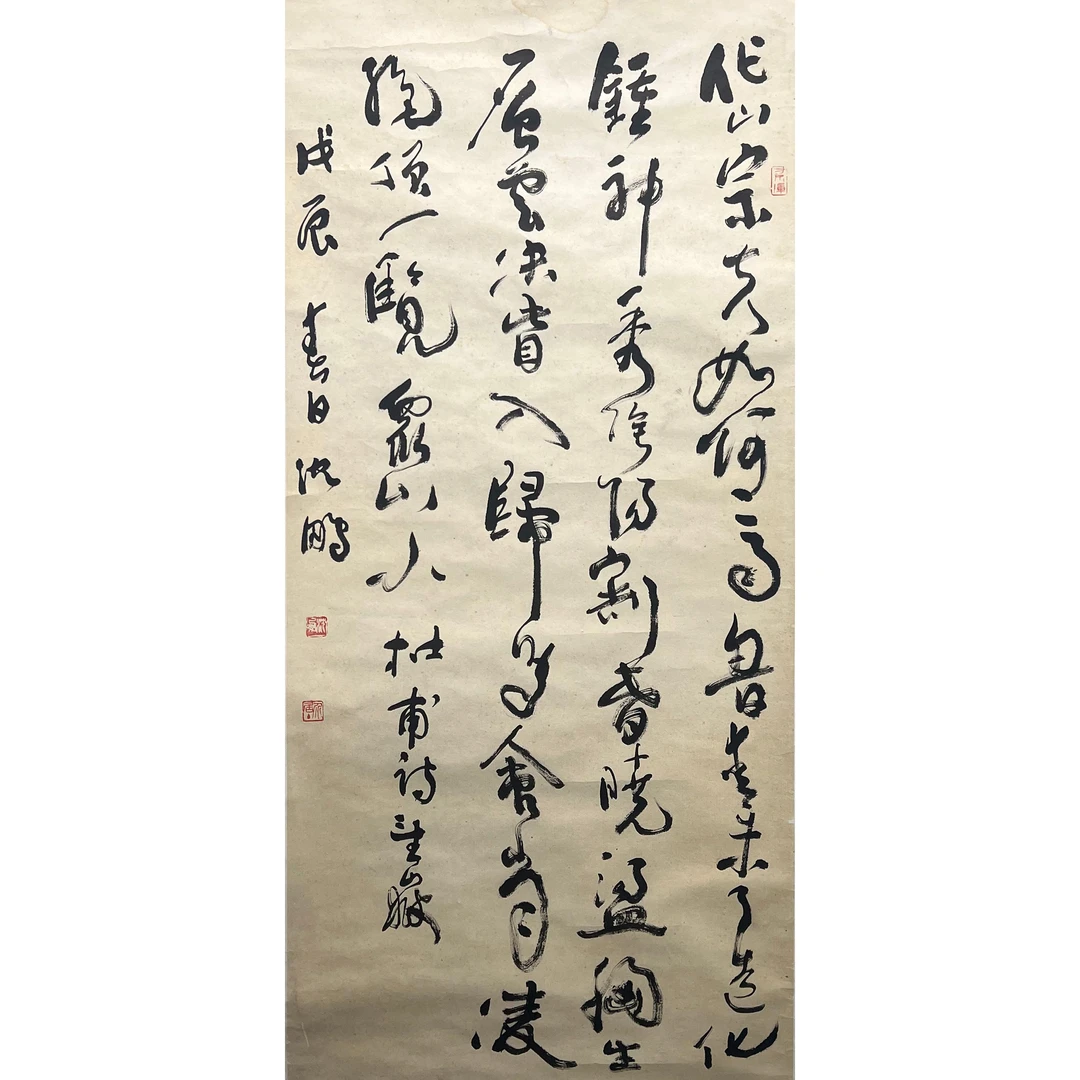 岱宗夫如何齊魯青未了造化
鍾神秀陰陽割昏曉盪胸生
層雲決眥入歸鳥會當凌
絕頂一覽眾山小 杜甫詩望嶽
戊辰春日沈鵬